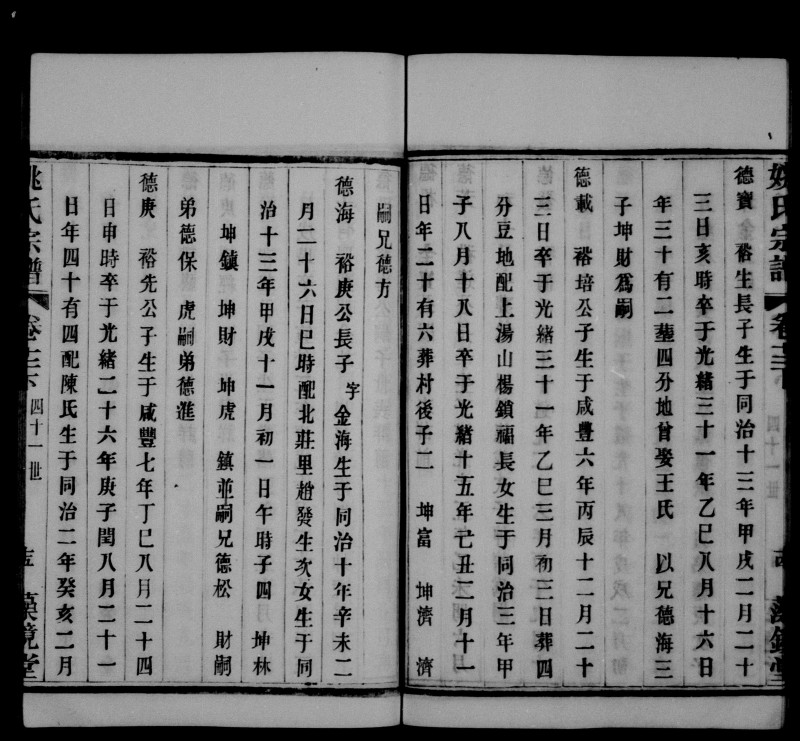 姚氏宗譜 卷十三下 四十一世
德寶 裕生長子生于同治十三年甲戌二月二十
三日亥時卒于光緒三十一年乙巳八月十六日
年三十有二塟四分地曾娶王氏 以兄德海三
子坤財爲嗣
德載 裕培公子生于咸豐六年丙辰十二月二十
三日卒于光緒三十一年乙巳三月初三日葬四
分豆地配上湯山楊鎖福長女生于同治三年甲
子八月十八日卒于光緒十五年亡丑二月十一
日年二十有六葬村後子二 坤富 坤濟 濟
嗣兄德方
德海 裕庚公長子 字金海生于同治十年辛未二
月二十六日巳時配北莊里趙發生次女生于同
治十三年甲戌十一月初一日午時子四 坤林
坤鎮 坤財 坤虎 鎮並嗣兄德松 財嗣
弟德保 虎嗣弟德進
德庚 裕先公子生于咸豐七年丁巳八月二十四
日申時卒于光緒二十六年庚子閏八月二十一
日年四十有四配陳氏生于同治二年癸亥二月
姚氏宗譜 卷十三下 四十一世 藻鏡堂